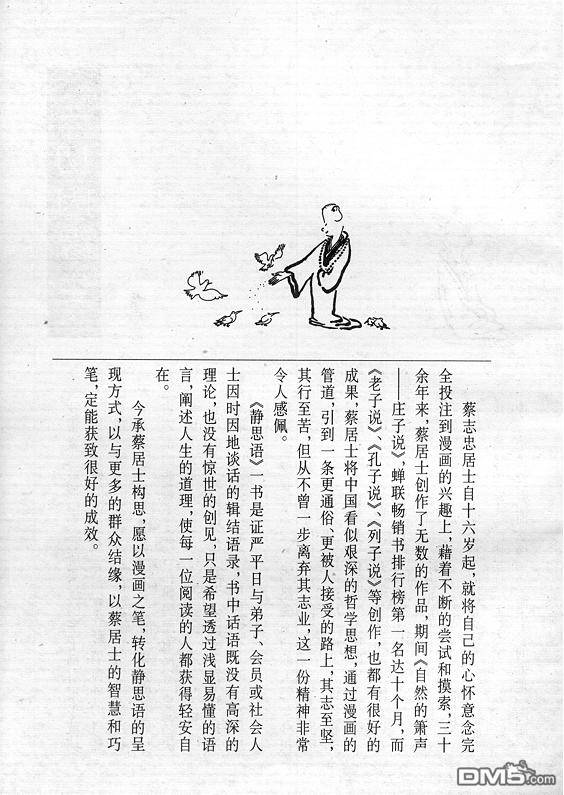 蔡志忠居士自十六岁起，就将自己的心怀意念完
全投注到漫画的兴趣上，藉着不断的尝试和摸索，三十
余年来，蔡居士创作了无数的作品，期间《自然的箫声
——庄子说》，蝉联畅销书排行榜第一名达十个月，而
《老子说》、《孔子说》、《列子说》等创作，也都有很好的
成果，蔡居士将中国看似艰深的哲学思想，通过漫画的
管道，引到一条更通俗、更被人接受的路上，其志至坚，
其行至苦，但从不曾一步离弃其志业，这一份精神非常
令人感佩。
《静思语》一书是证严平日与弟子、会员或社会人
士因时因地谈话的辑结语录，书中话语既没有高深的
理论，也没有惊世的创见，只是希望透过浅显易懂的语
言，阐述人生的道理，使每一位阅读的人都获得轻安自
在。
今承蔡居士构思，愿以漫画之笔，转化静思语的呈
现方式，以与更多的群众结缘，以蔡居士的智慧和巧
笔，定能获致很好的成效。
DM5.com